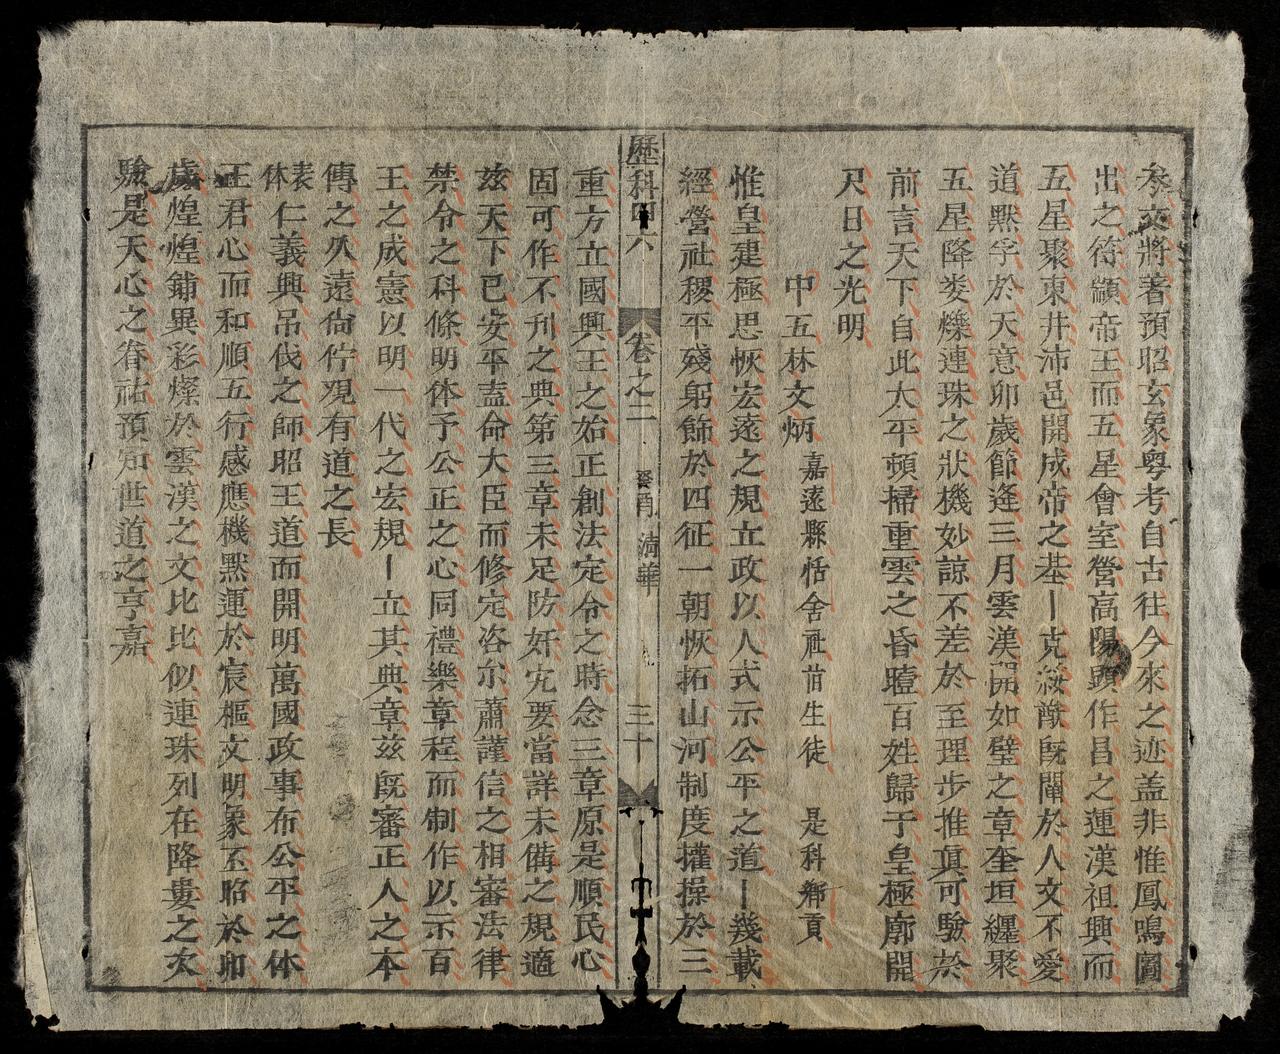 參交將著預昭玄象粵考自古往今來之迹盖非惟鳳鳴圖
出之符顓帝王而五星會室營高陽頭作昌之運漢祖興而
五星聚東井沛邑開成帝之基丨克綏猷旣闡於人文不愛
道默孚於天意卯歲節逢三月雲漢開如璧之章奎垣纏聚
五星降娄爍連珠之狀機妙諒不差於至理步推眞可驗於
前言天下自此太平頓掃重雲之昏曀百姓歸于皇極廓開
尺日之光明
中五林文炳 嘉遠縣恬舍社前生徒 是科鄉貢
惟皇建極思恢宏遠之規立政以人式示公平之道丨幾載
經營社稷平殘躬飾於四征一朝恢拓山河制度攉操於三
歷科四六 卷之二 癸酉 淸華 三十
重方立國興王之始正創法定令之時念三章原是順民心
固可作不刊之典第三章未足防奸宄要當詳未備之規適
茲天下已安平盍命大臣而修定咨尔蕭謹信之相審法律
禁令之科條明体予公正之心同禮樂章程而制作以示百
王之成憲以明一代之宏規丨立其典章茲旣審正人之本
傳之久遠尙佇观有道之長
表体仁義興吊伐之師昭王道而開明萬國政事布公平之体
正君心而和順五行感應機默運於宸樞文明象丕昭於卯
歲煌煌鋪異彩燦於雲漢之文比比似連珠列在降婁之次
驗是天心之眷祐預知世道之亨嘉